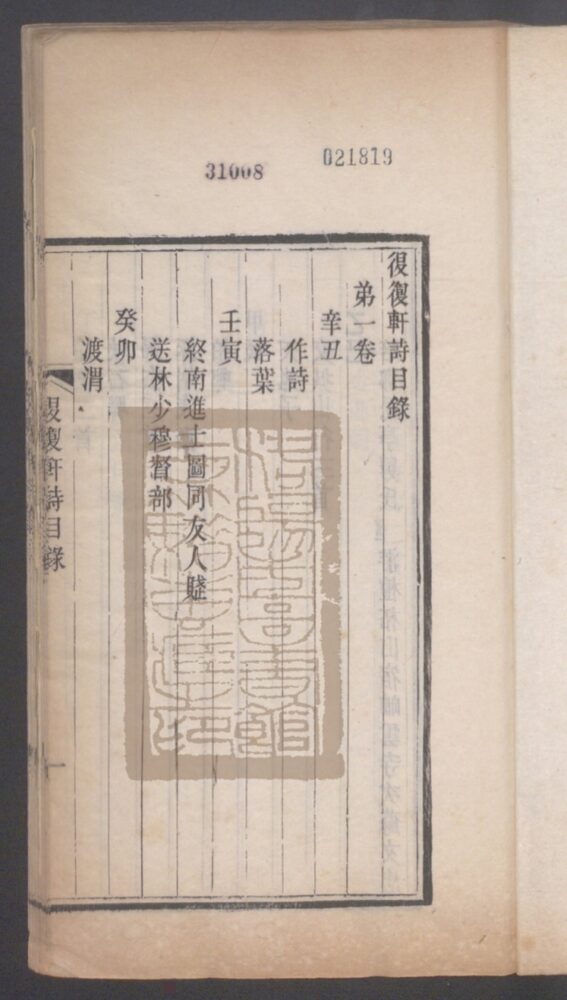 31008
021819
復復軒詩目錄
弟一卷
辛丑
作詩
落葉
壬寅
終南進士圖同友人賤
送林少穆督部
癸卯
渡渭
復復軒詩目錄
一